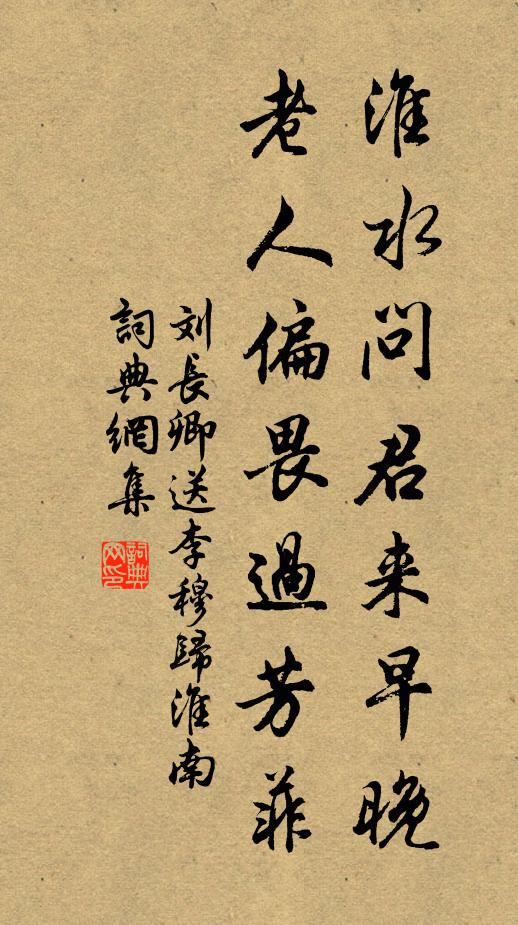 淮水问君来早晚
老人偏畏過芳菲
刘長卿送李穆歸淮南
詞典網集
詞典网印